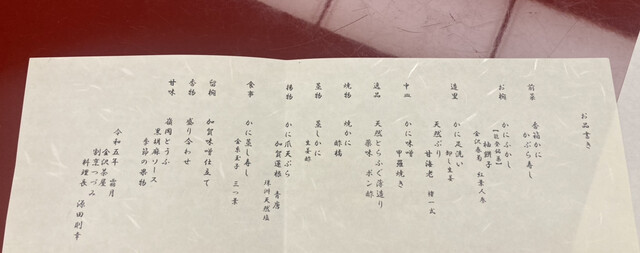 お品書き
前菜
香箱かに
かぶら寿し
お椀
かにふかし
【能登銘菜】
柚餅子
金沢春菊 紅葉人参
造里
かに足洗い
卸し生姜
天然ぶり
甘海老 褄一式
中皿
かに味噌
甲羅焼き
逸品
天然とらふぐ薄造り
薬味 ポン酢
焼物
焼かに
酢橘
蒸物
蒸しかに
生姜酢
揚物
かに爪天ぷら
加賀蓮根 青唐
珠洲天然塩
食事
かに蒸し寿し
金糸玉子 三つ葉
留椀
加賀味噌仕立て
香物
盛り合わせ
甘味
笹岡とうふ
黒胡麻ソース
季節の果物
令和五年 霜月
金沢茶屋
割烹つづみ
料理長 源田則幸